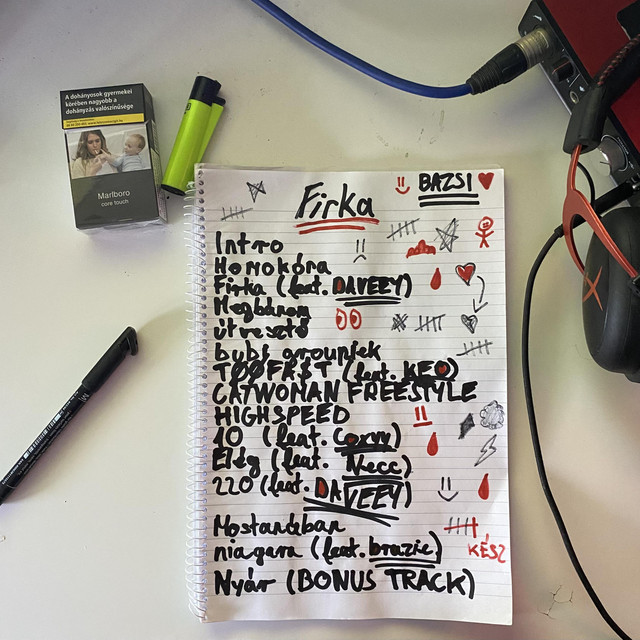 A dohányosok gyermekei
körében nagyobb a
dohányzás valószínűsége
Marlboro
core touch
BAZSI
Firka
Intro
Homokóra
Firka (feat. DAVEEY)
Megbánom
útvesztő
bubi groupiek
TØØFA$T (feat. KEO)
CATWOMAN FREESTYLE
HIGHSPEED
10 (feat. Coxvv)
Eldg (feat. Necc)
220 (feat. DAVEEY)
Mostanában
niagara (feat. brazic)
KÉSZ
Nyár (BONUS TRACK)